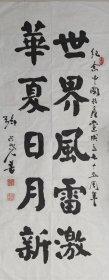 紀念中國共產黨成立十五周年
世界風雷激
華夏日月新
書